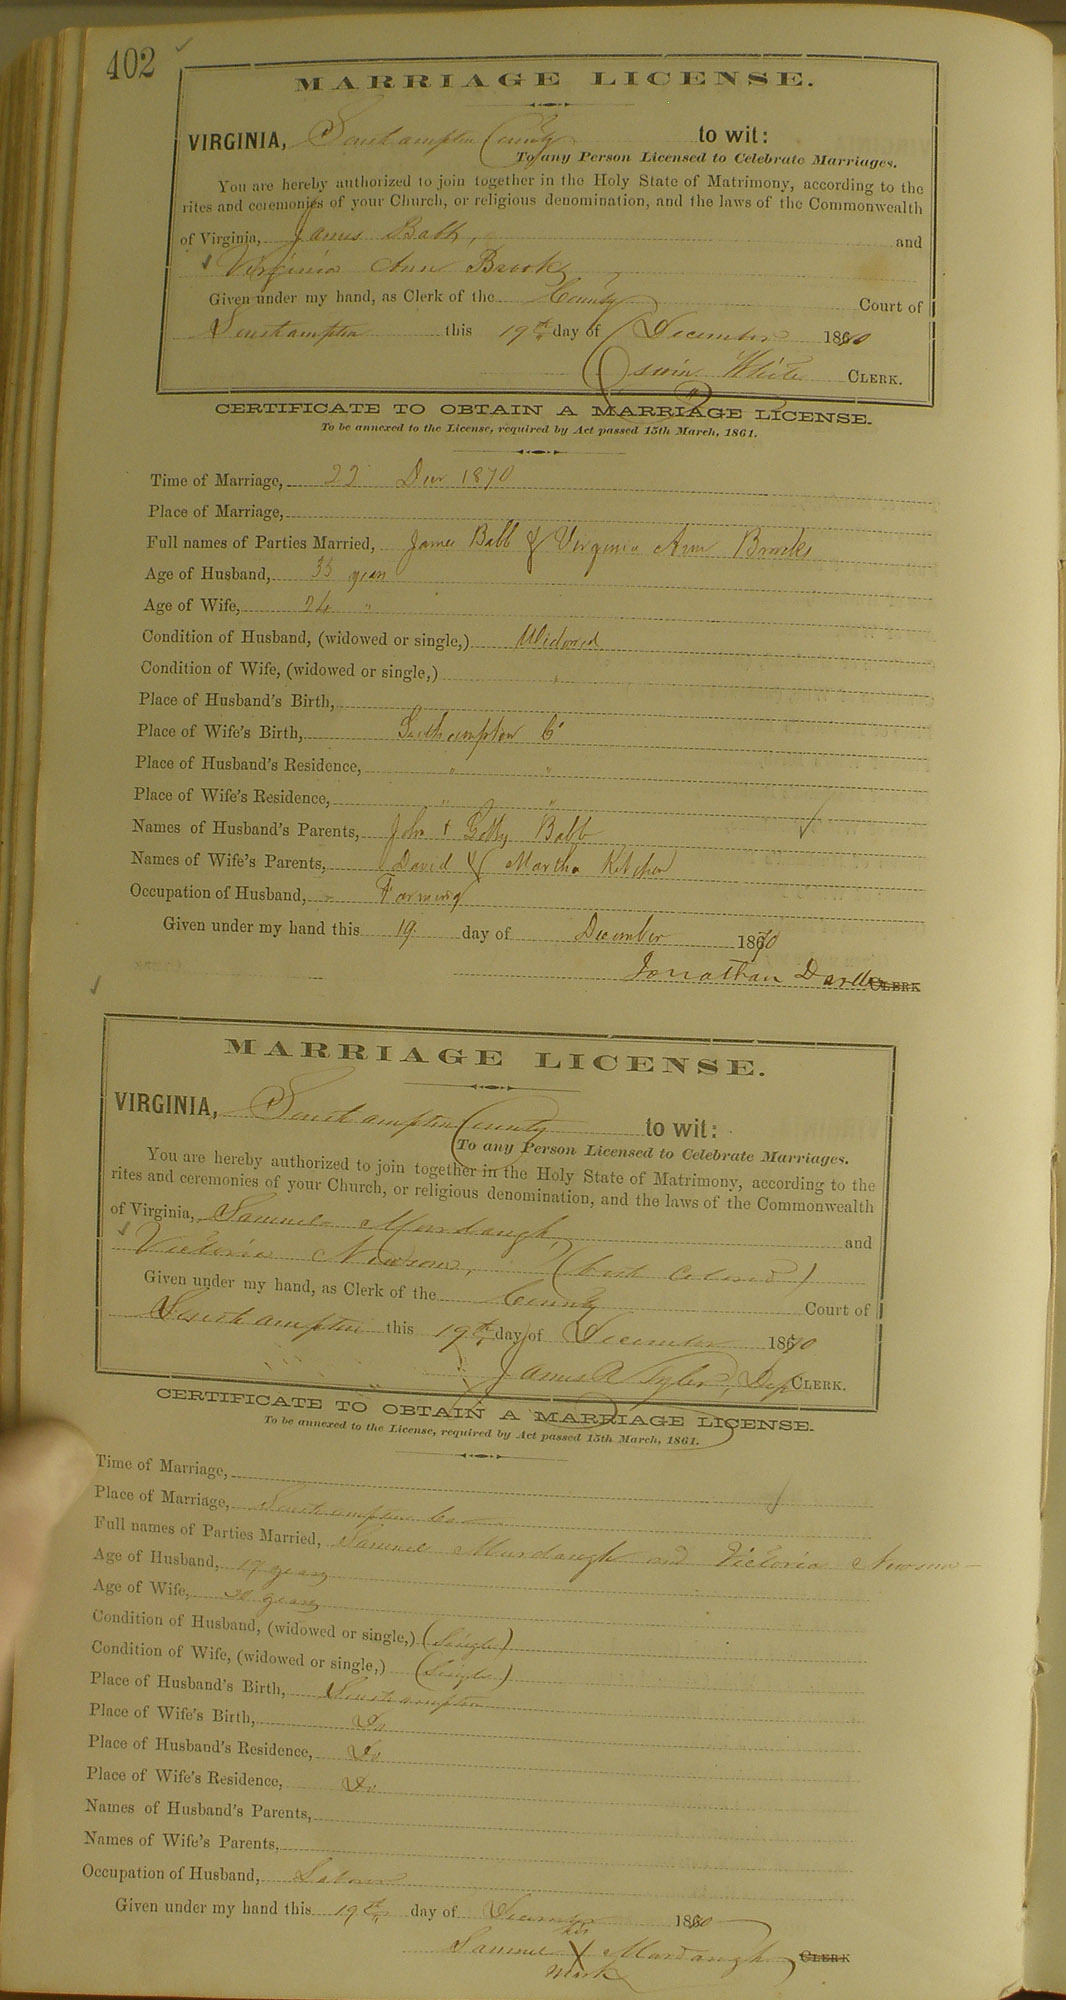 402
MARRIAGE LICENSE.
VIRGINIA, Southampton County to wit:
To any Person Licensed to Celebrate Marriages.
You are hereby authorized to join together in the Holy State of Matrimony, according to the
rites and ceremonies of your Church, or religious denomination, and the laws of the Commonwealth
of Virginia, James Babb, and
Virginia Ann Brooks
Given under my hand, as Clerk of the County Court of
Southampton this 19th day of December 1870
Oswin White CLERK.
CERTIFICATE TO OBTAIN A MARRIAGE LICENSE.
To be annexed to the License, required by Act passed 15th March, 1861.
Time of Marriage, 22 Decr 1870
Place of Marriage,
Full names of Parties Married, James Babb & Virginia Ann Brooks
Age of Husband, 35 years
Age of Wife, 24 "
Condition of Husband, (widowed or single,) Widowed
Condition of Wife, (widowed or single,) "
Place of Husband's Birth,
Place of Wife's Birth, Southampton Co
Place of Husband's Residence, " "
Place of Wife's Residence, " "
Names of Husband's Parents, John + Babb
Names of Wife's Parents, David & Martha Kitchen
Occupation of Husband, Farming
Given under my hand this 19 day of December 1870
Jonathan Darden CLERK
MARRIAGE LICENSE.
VIRGINIA, Southampton County to wit:
To any Person Licensed to Celebrate Marriages.
You are hereby authorized to join together in the Holy State of Matrimony, according to the
rites and ceremonies of your Church, or religious denomination, and the laws of the Commonwealth
of Virginia, Samuel Murdaugh, and
Victoria Newsom, (both Colored)
Given under my hand, as Clerk of the County Court of
Southampton this 19th day of December 1870
James A Tyler, Dep CLERK.
CERTIFICATE TO OBTAIN A MARRIAGE LICENSE.
To be annexed to the License, required by Act passed 15th March, 1861.
Time of Marriage,
Place of Marriage, Southampton Co
Full names of Parties Married, Samuel Murdaugh and Victoria Newsom
Age of Husband, 19 years
Age of Wife, 20 years
Condition of Husband, (widowed or single,) (Single)
Condition of Wife, (widowed or single,) (Single)
Place of Husband's Birth, Southampton
Place of Wife's Birth, Do
Place of Husband's Residence, Do
Place of Wife's Residence, Do
Names of Husband's Parents,
Names of Wife's Parents,
Occupation of Husband, Laborer
Given under my hand this 19th day of December 1870
his
Samuel X Murdaugh CLERK
mark